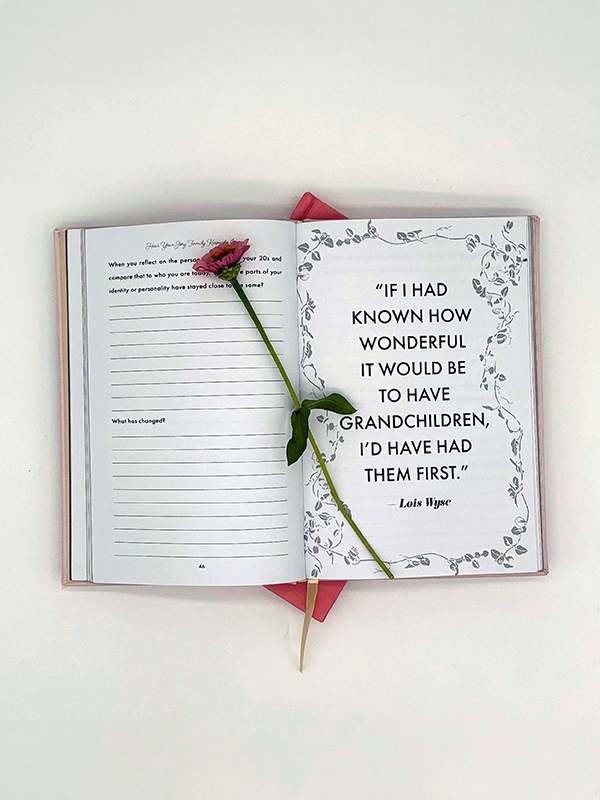 Hear Your Story Family Keepsake
When you reflect on the your 20s and
compare that to who you are today, parts of your
identity or personality have stayed close to the same?
What has changed?
46
“IF I HAD
KNOWN HOW
WONDERFUL
IT WOULD BE
TO HAVE
GRANDCHILDREN,
I’D HAVE HAD
THEM FIRST.”
— Lois Wyse